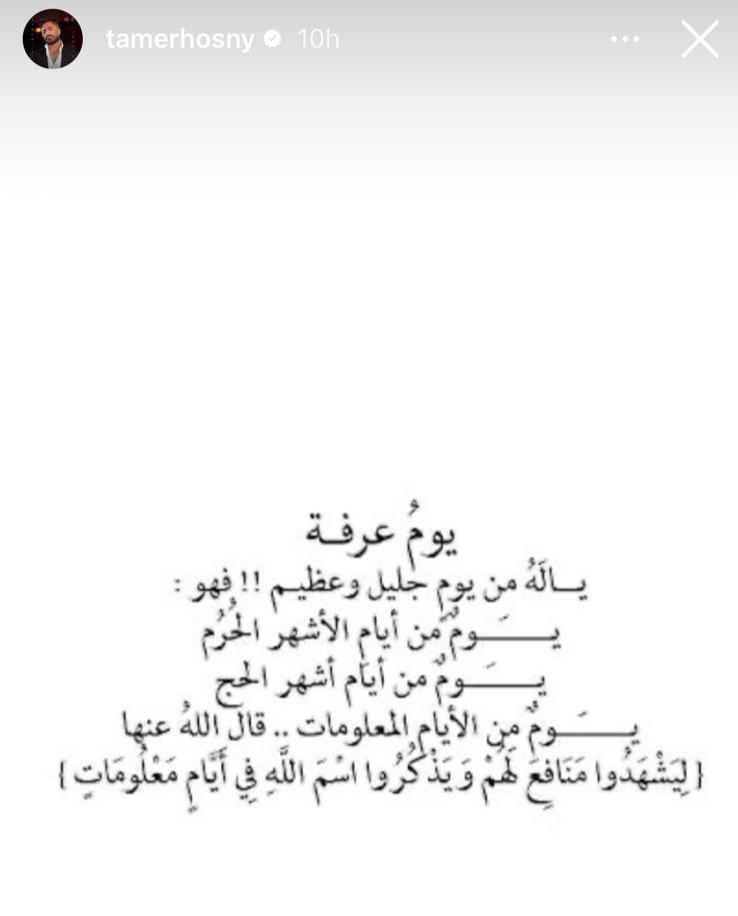 tamerhosny 10h
يومُ عرفـة
يــالَهُ من يوم جليل وعظيـم !! فهو :
يـــــَـومٌ من أيام الأشهر الحُرُم
يـــــَـومٌ من أيام أشهر الحج
يـــــَـومٌ من الأيام المعلومات .. قال اللهُ عنها
{ لِيَشْهَدُوا مَنَافِعَ لَهُمْ وَيَذْكُرُوا اسْمَ اللَّهِ فِي أَيَّامٍ مَعْلُومَاتٍ }